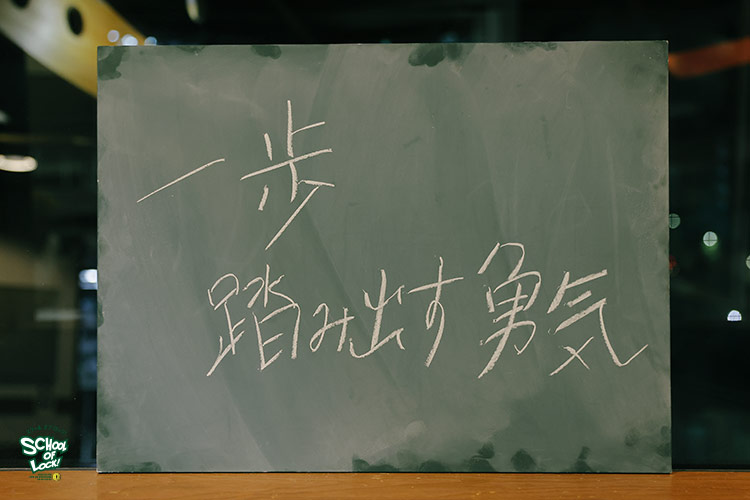 一歩
踏み出す勇気
SCHOOL
OF
LOCK!